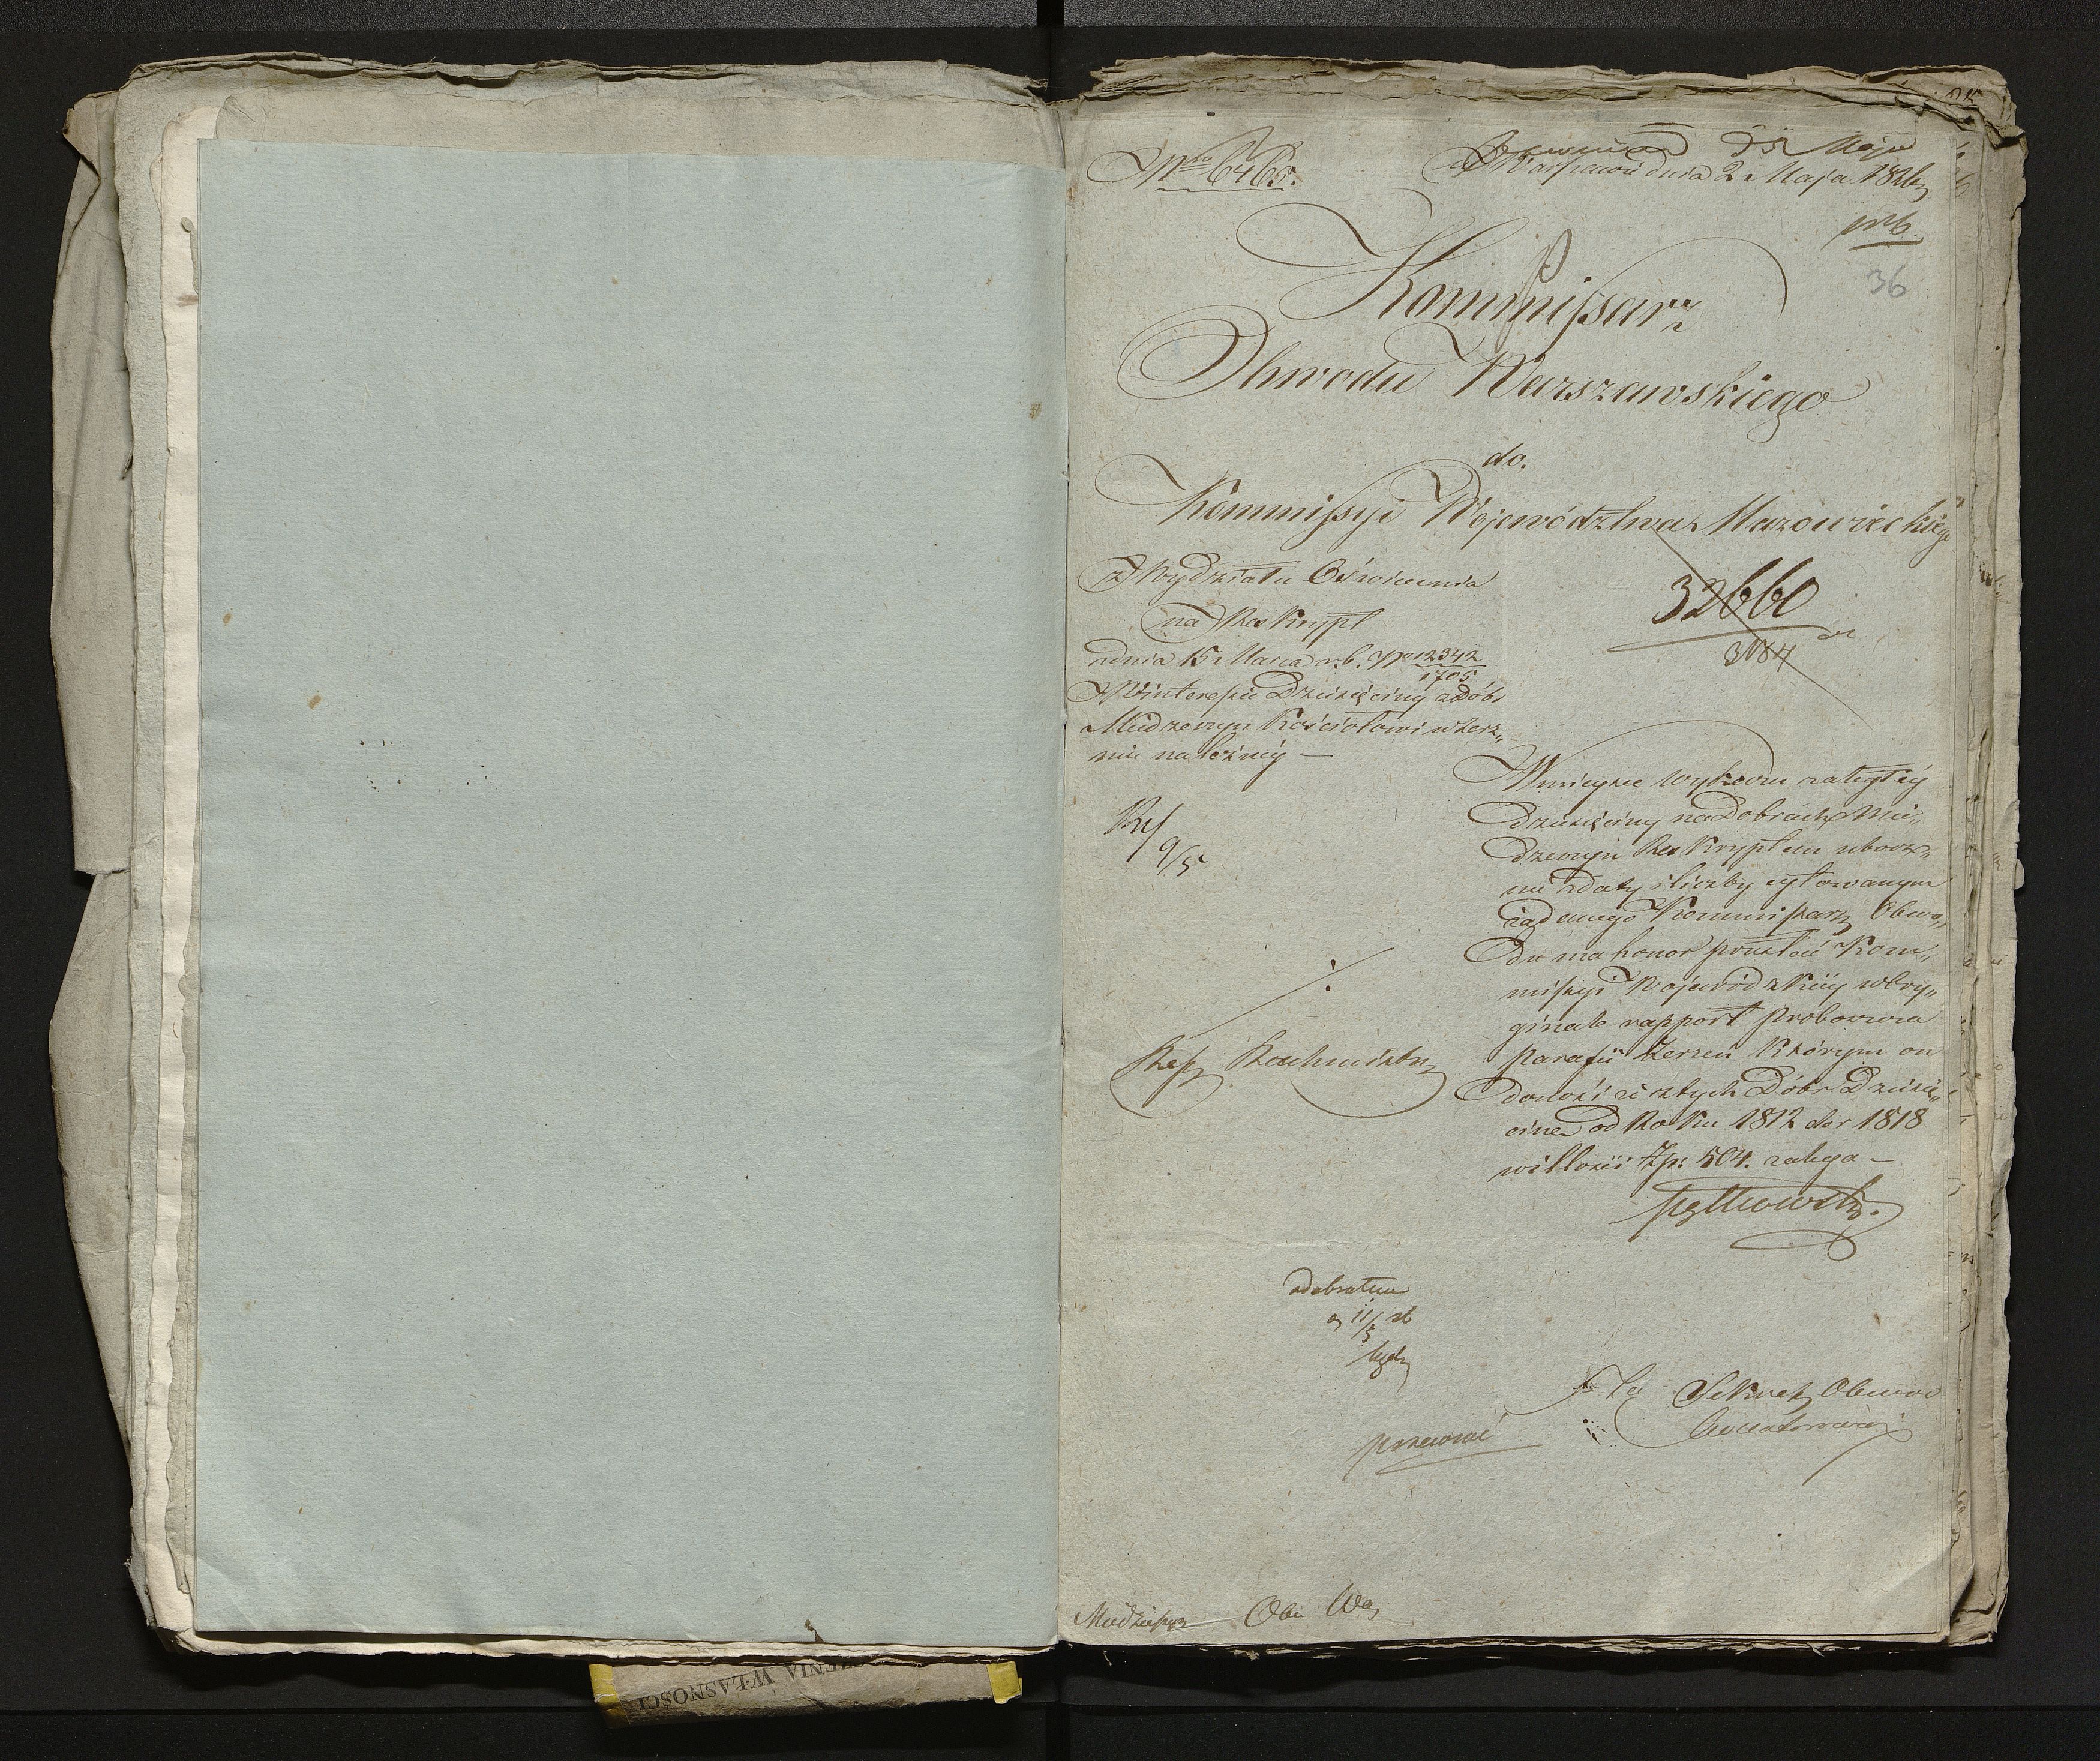 Nro 6465.
w Warszawie dnia 2 Maja 1826
36
Kommissarz
Obwodu Warszawskiego
do.
Kommissyi Województwa Mazowieckiego
Wydziału Oświecenia
na Reskrypt
z dnia 15 Marca r.b. No 12342
1705
W interesie Dziesięciny z Dóbr
Miedzeszyn Kościołowi w Zerz„
nie należnéy —
32660
3184
W mieysce wykazu zaległéy
Dziesięciny na Dobrach Mie„
dzeszyn Reskryptem ubocz„
nie z daty i liczby cytowanym
żądanego Kommissarz Obwo„
du ma honor przesłać Kom„
missyi Wojewódzkiéy w Ory„
ginale rapport Proboszcza
Parafii Zerzeń którym on
donosi iż z tych Dóbr Dziesię„
cina od Roku 1812 do r 1818
w illości Zp: 504. zalega —
9/5
odebrałem
11/5
Sekret Obwodu
Obw Wa
WŁASNOSCI